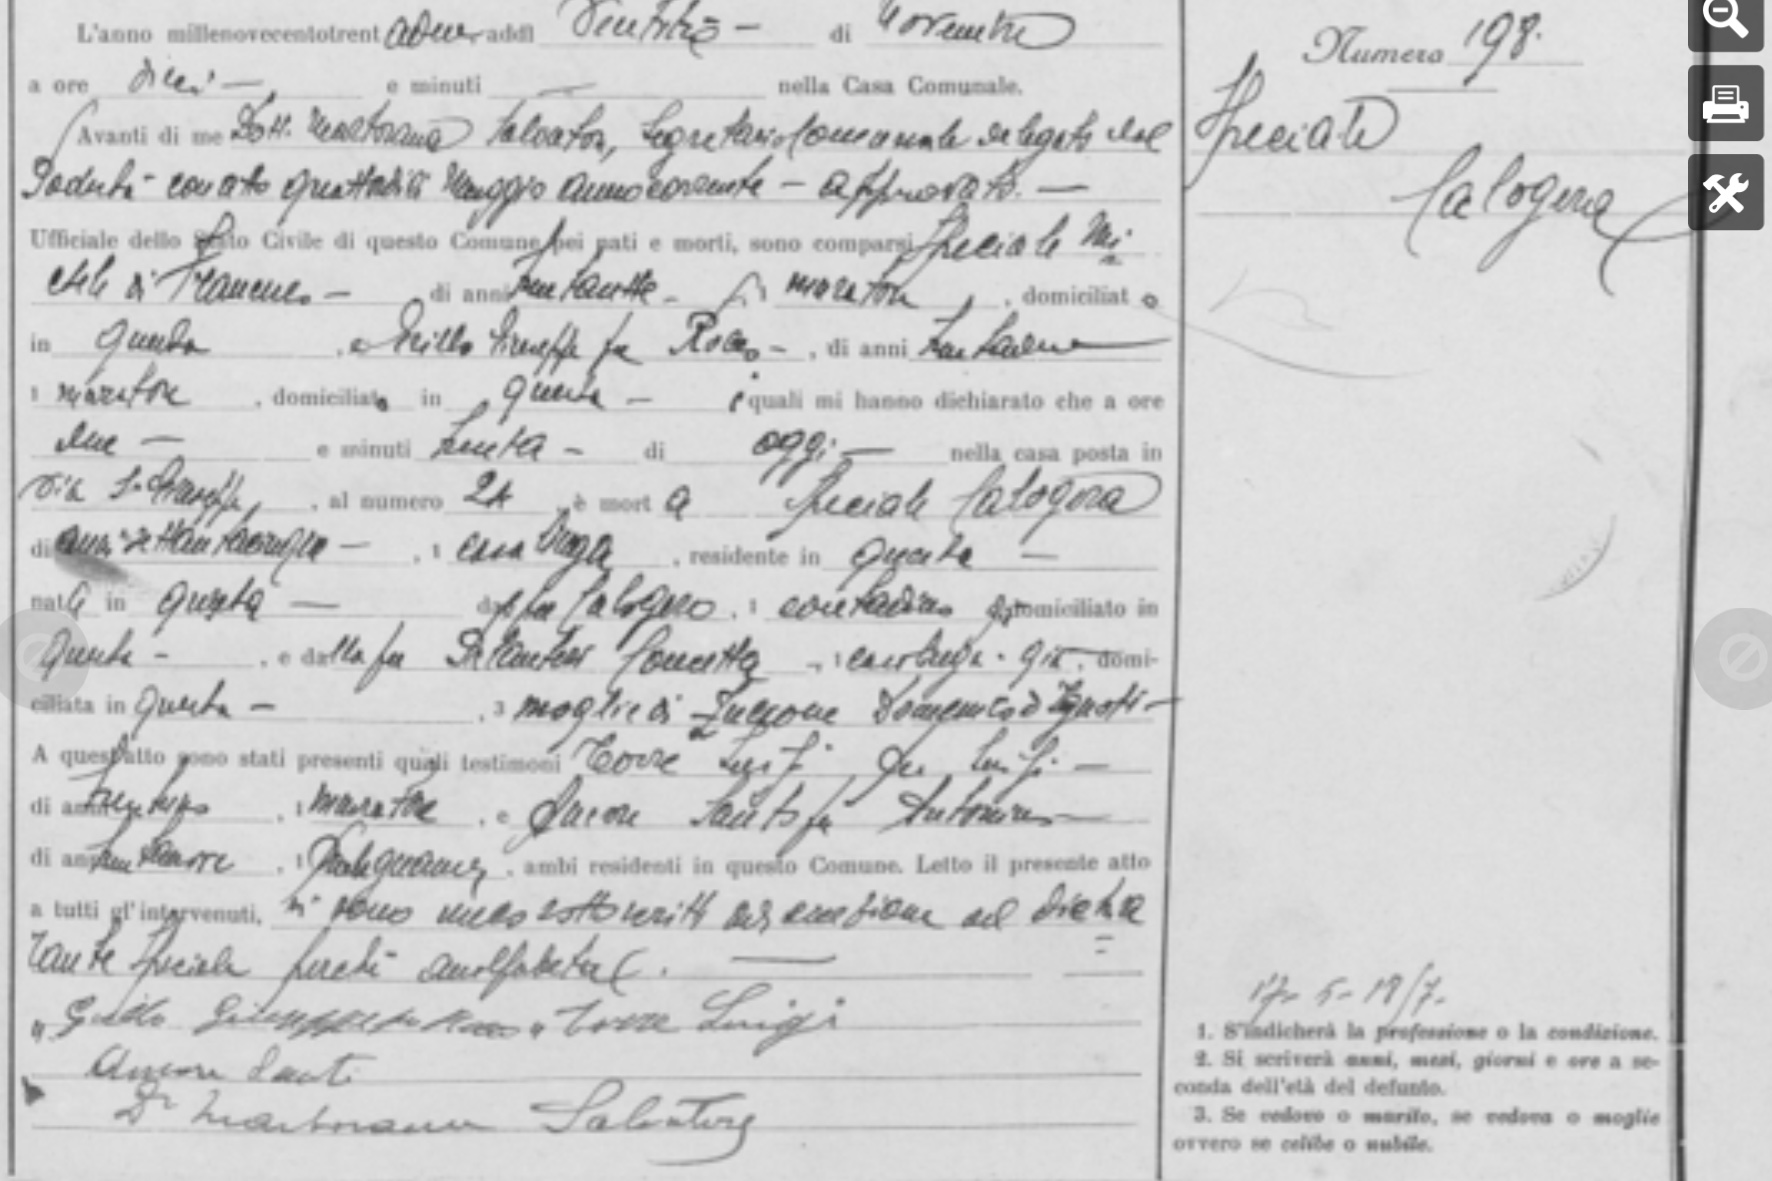 L'anno millenovecentotrent adue addì Ventitrè - di Novembre
a ore dieci — e minuti — nella Casa Comunale.
Avanti di me Dott. Martorana Salvatore, Segretario Comunale delegato dal
Podestà con atto quattordici Maggio anno corrente — approvato. —
Ufficiale dello Stato Civile di questo Comune pei nati e morti, sono comparsi Speciale Mi
chele di Francesco - di anni trentasette - muratore, domiciliato
in questa, e Grillo Giuseppe fu Rocco -, di anni
1 muratore, domiciliato in questa - i quali mi hanno dichiarato che a ore
due — e minuti trenta - di oggi — nella casa posta in
via S. Giuseppe, al numero 24, è mort a Speciale Calogera
di anni settantacinque -, 1 casalinga, residente in questa —
nata in questa — dal fu Calogero, 1 contadino già domiciliato in
questa -, e dalla fu Concetta, 1 casalinga già, domi-
ciliata in questa -, 3 moglie di Domenico d'Ignoti -
A quest'atto sono stati presenti quali testimoni Torre Luigi fu Luigi -
di anni, 1 muratore, e Ancone Santi fu Antonino
di anni, 1 falegname, ambi residenti in questo Comune. Letto il presente atto
a tutti gl'intervenuti, si sono meco sottoscritti ad eccezione del dichia
rante Speciale perchè analfabeta. —
Grillo Giuseppe fu Rocco Torre Luigi
Ancone Santi
Dr Martorana Salvatore
Numero 198.
Speciale
Calogera
1. S'indicherà la professione o la condizione.
2. Si scriverà anni, mesi, giorni e ore a se-
conda dell'età del defunto.
3. Se vedovo o marito, se vedova o moglie
ovvero se celibe o nubile.